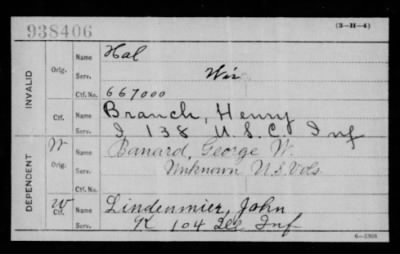 938406 (3-H-4)
INVALID
Orig. Name Hal
Serv. Wir
Ctf. No. 667000
Ctf. Name Branch, Henry
Serv. I 138 U.S.C. Inf
DEPENDENT
W Orig. Name Banard, George W.
Serv. Unknown U.S. Vols.
Ctf. No.
W Ctf. Name Lindenmier, John
Serv. K 104 Ill Inf